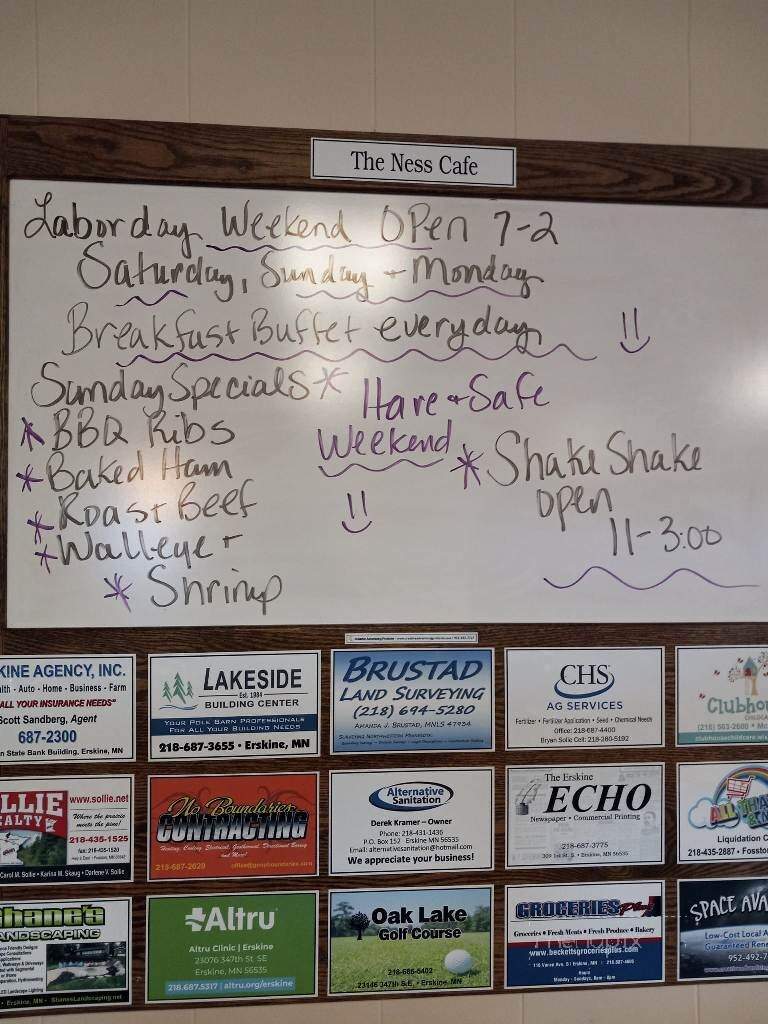 The Ness Cafe
Laborday Weekend Open 7-2
Saturday, Sunday + Monday
Breakfast Buffet everyday
Sunday Specials *
* BBQ Ribs
* Baked Ham
* Roast Beef
* Walleye +
* Shrimp
Have a Safe
Weekend
* Shake Shake
open
11-3:00
KINE AGENCY, INC.
lth - Auto - Home - Business - Farm
ALL YOUR INSURANCE NEEDS"
Scott Sandberg, Agent
687-2300
n State Bank Building, Erskine, MN
LAKESIDE
Est. 1984
BUILDING CENTER
YOUR POLE BARN PROFESSIONALS
FOR ALL YOUR BUILDING NEEDS
218-687-3655 • Erskine, MN
BRUSTAD
LAND SURVEYING
(218) 694-5280
AMANDA J. BRUSTAD, MNLS 47934
SURVEYING NORTHWESTERN MINNESOTA
CHS
AG SERVICES
Fertilizer • Fertilizer Application • Seed • Chemical Needs
Office: 218-687-4400
Bryan Solie Cell: 218-280-5192
Clubhou
LLIE
EALTY
www.sollie.net
Where the prairie
meets the pines!
218-435-1525
fax: 218-435-1520
Carol M. Sollie • Karina M. Skaug • Darlene V. Sollie
No Boundaries
CONTRACTING
Heating, Cooling, Electrical, Geothermal, Directional Boring
and More!
218-687-2020
Alternative
Sanitation
Derek Kramer – Owner
Phone: 218-431-1436
P.O. Box 152 Erskine MN 56535
Email: alternativesanitation@hotmail.com
We appreciate your business!
The Erskine
ECHO
Newspaper • Commercial Printing
218-687-3775
309 1st St. S. • Erskine, MN 56535
ALL THA
Liquidation C
218-435-2887 • Fossto
Shane's
ANDSCAPING
Erskine, MN • ShanesLandscaping.net
Altru
Altru Clinic | Erskine
23076 347th St. SE
Erskine, MN 56535
218.687.5317 | altru.org/erskine
Oak Lake
Golf Course
218-686-5402
23146 347th S.E. • Erskine, MN
GROCERIES Plus!
Groceries • Fresh Meats • Fresh Produce • Bakery
www.beckettsgroceriesplus.com
Hours
Monday - Sunday, 8am - 8pm
SPACE AVA
Low-Cost Local A
Guaranteed Rene
952-492-7
menupix